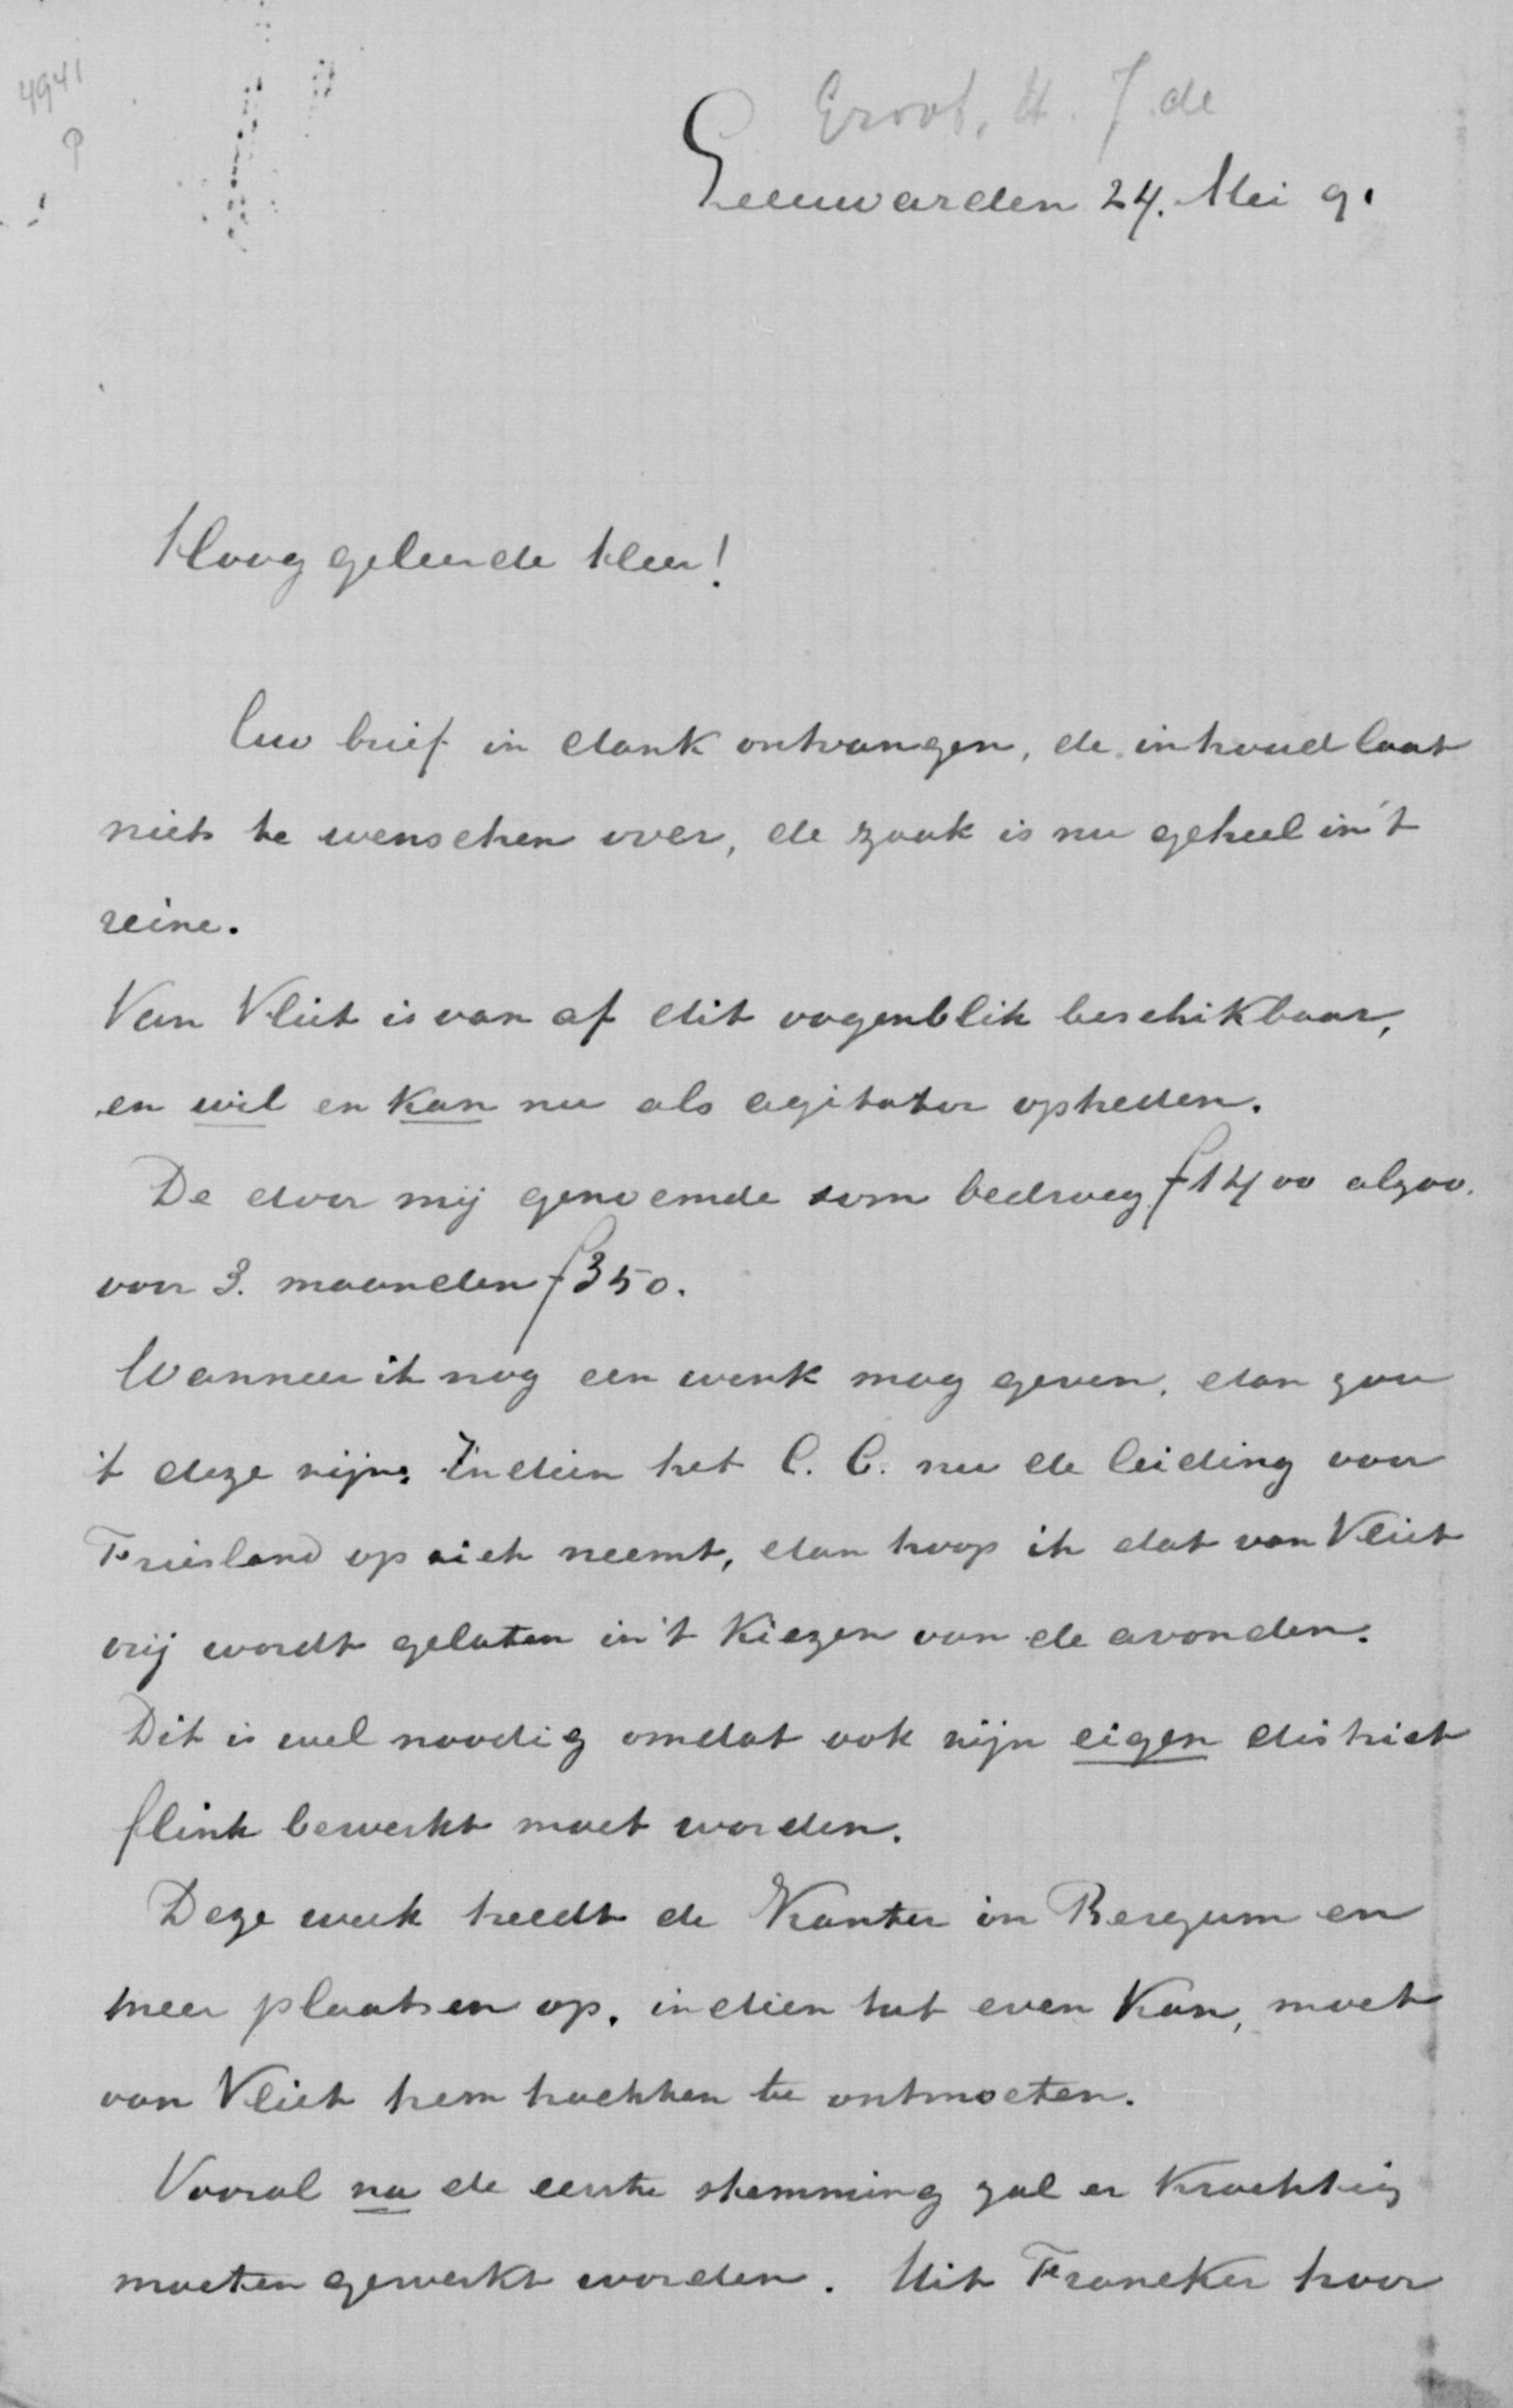 4941
Groot, H. J. de
Leeuwarden 24. Mei 91
Hooggeleerde Heer!
Uw brief in dank ontvangen, de inhoud laat
niets te wenschen over, de zaak is nu geheel in 't
reine.
Van Vliet is van af dit oogenblik beschikbaar,
en wil en kan nu als agitator optreden.
De door mij genoemde som bedroeg f 1400 alzoo
voor 3. maanden f 350.
Wanneer ik nog een wenk mag geven, dan zou
't deze zijn: Indien het C. C. nu de leiding voor
Friesland op zich neemt, dan hoop ik dat van Vliet
vrij wordt gelaten in 't kiezen van de avonden.
Dit is wel noodig omdat ook zijn eigen district
flink bewerkt moet worden.
Deze week treedt de Kanter in Bergum en
meer plaatsen op, indien het even kan, moet
van Vliet hem trachten te ontmoeten.
Vooral na de eerste stemming zal er krachtig
moeten gewerkt worden. Uit Franeker hoor